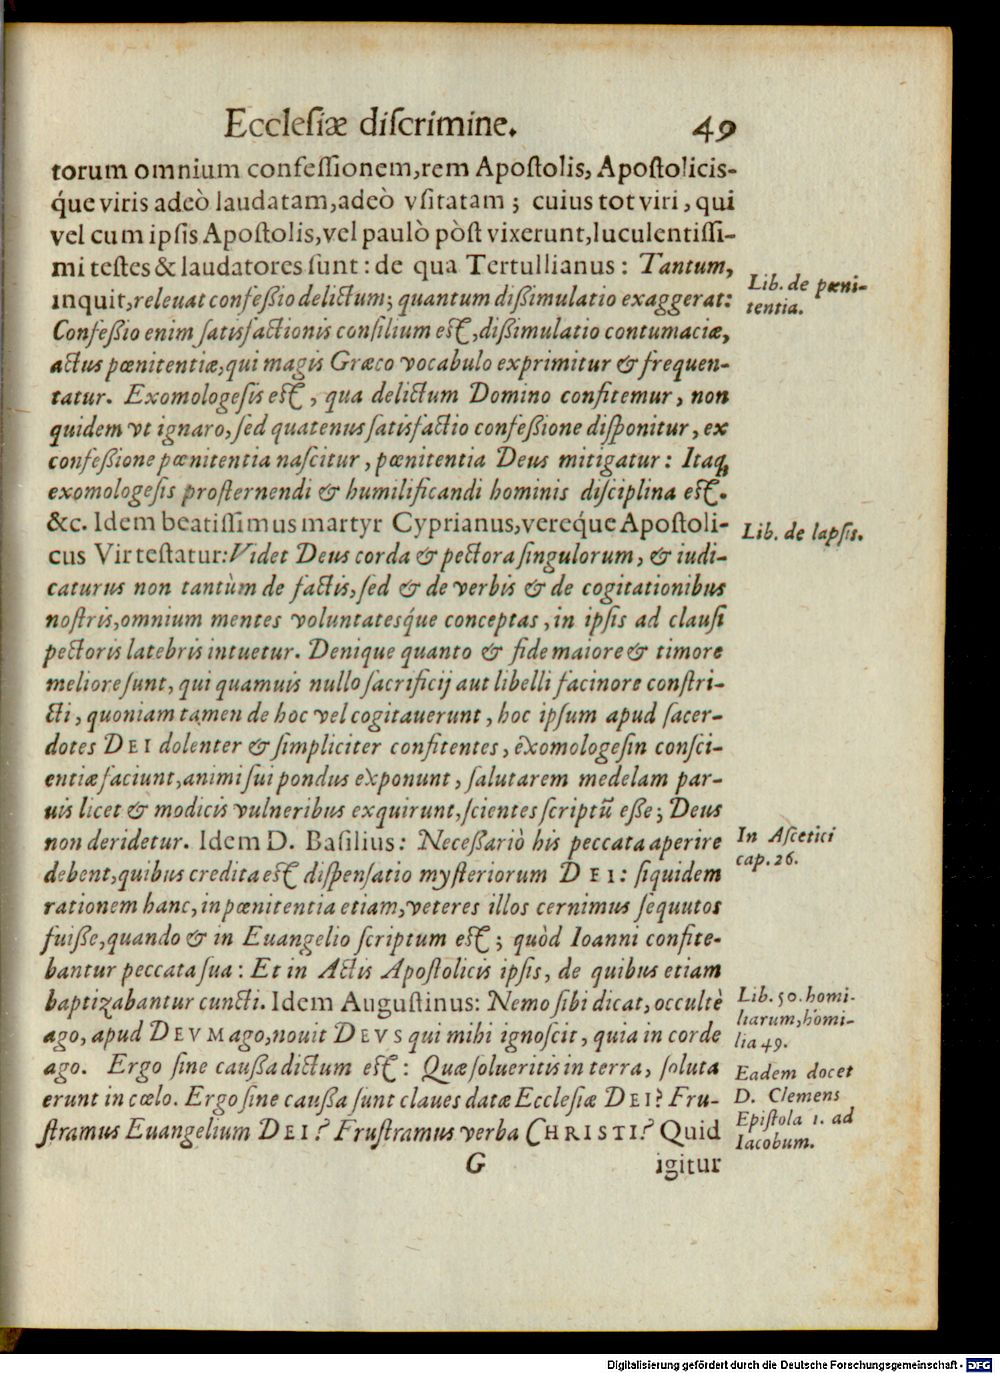 Ecclesiæ diſcrimine. 49
torum omnium confeſſionem, rem Apoſtolis, Apoſtolicis-
q́ue viris adeò laudatam, adeò vſitatam; cuius tot viri, qui
vel cum ipſis Apoſtolis, vel paulò pòſt vixerunt, luculentiſſi-
mi teſtes & laudatores ſunt: de qua Tertullianus: Tantum,
inquit, releuat confeßio delictum; quantum dißimulatio exaggerat:
Lib. de pœni-
tentia.
Confeßio enim ſatisfactionis conſilium eſt, dißimulatio contumaciæ,
actus pœnitentiæ, qui magis Græco vocabulo exprimitur & frequen-
tatur. Exomologeſis eſt, qua delictum Domino confitemur, non
quidem vt ignaro, ſed quatenus ſatisfactio confeßione diſponitur, ex
confeßione pœnitentia naſcitur, pœnitentia Deus mitigatur: Itaq;
exomologeſis proſternendi & humilificandi hominis diſciplina eſt.
&c. Idem beatiſſimus martyr Cyprianus, vereq́ue Apoſtoli-
Lib. de lapſis.
cus Vir teſtatur: Videt Deus corda & pectora ſingulorum, & iudi-
caturus non tantùm de factis, ſed & de verbis & de cogitationibus
noſtris, omnium mentes voluntatesq́ue conceptas, in ipſis ad clauſi
pectoris latebris intuetur. Denique quanto & fide maiore & timore
meliore ſunt, qui quamuis nullo ſacrificij aut libelli facinore conſtri-
cti, quoniam tamen de hoc vel cogitauerunt, hoc ipſum apud ſacer-
dotes DEI dolenter & ſimpliciter confitentes, exomologeſin conſci-
entiæ faciunt, animi ſui pondus exponunt, ſalutarem medelam par-
uis licet & modicis vulneribus exquirunt, ſcientes ſcriptū eße; Deus
non deridetur. Idem D. Baſilius: Neceßariò his peccata aperire
In Aſcetici
cap. 26.
debent, quibus credita eſt diſpenſatio myſteriorum DEI: ſiquidem
rationem hanc, in pœnitentia etiam, veteres illos cernimus ſequutos
fuiße, quando & in Euangelio ſcriptum eſt; quòd Ioanni confite-
bantur peccata ſua: Et in Actis Apoſtolicis ipſis, de quibus etiam
baptizabantur cuncti. Idem Auguſtinus: Nemo ſibi dicat, occultè
Lib. 50. homi-
liarum, homi-
lia 49.
ago, apud DEVM ago, nouit DEVS qui mihi ignoſcit, quia in corde
ago. Ergo ſine cauſſa dictum eſt: Quæ ſolueritis in terra, ſoluta
Eadem docet
D. Clemens
Epiſtola 1. ad
Iacobum.
erunt in cœlo. Ergo ſine cauſſa ſunt claues datæ Eccleſiæ DEI? Fru-
ſtramus Euangelium DEI? Fruſtramus verba CHRISTI? Quid
G igitur
Digitalisierung gefördert durch die Deutsche Forschungsgemeinschaft - DFG